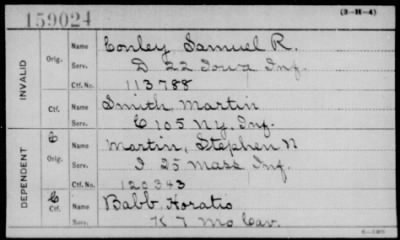 159024
(3-H-4)
INVALID
Orig.
Name Conley Samuel R.
Serv. D 22 Iowa Inf.
Ctf. No. 113788
Ctf.
Name Smith, Martin
Serv. C 105 N.Y. Inf.
DEPENDENT
C
Orig.
Name Martin, Stephen N
Serv. I 25 Mass Inf.
Ctf. No. 120343
C
Ctf.
Name Babb, Horatio
Serv. K 7 Mo Cav.